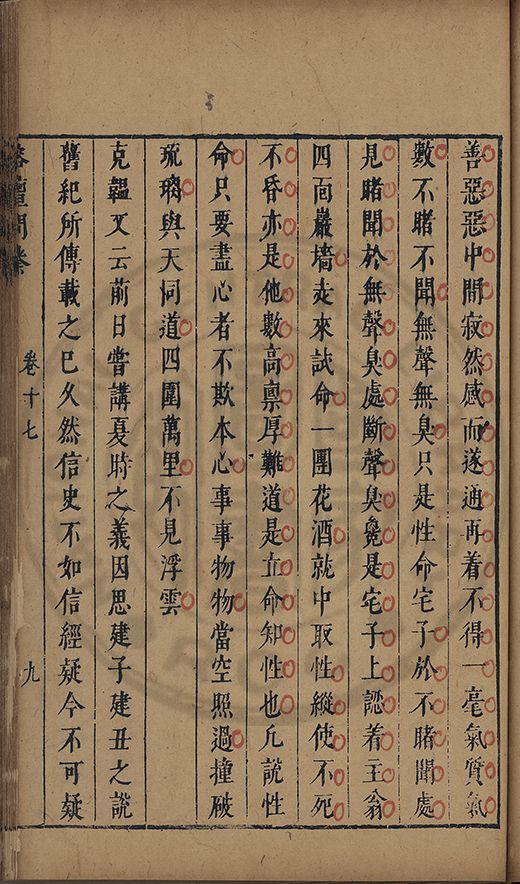 善惡惡中間寂然感而遂通再着不得一毫氣質氣
數不睹不聞無聲無臭只是性命宅子於不睹聞處
見睹聞於無聲臭處斷聲臭纔是宅子上認着主翁
四面巖墻走來試命一團花酒就中取性縱使不死
不昏亦是他數高禀厚難道是立命知性也凡說性
命只要盡心者不欺本心事事物物當空照過撞破
琉璃與天同道四圍萬里不見浮雲
克韞又云前日嘗講夏時之義因思建子建丑之說
舊紀所傳載之已久然信史不如信經疑今不可疑
榕壇問業
卷十七
九